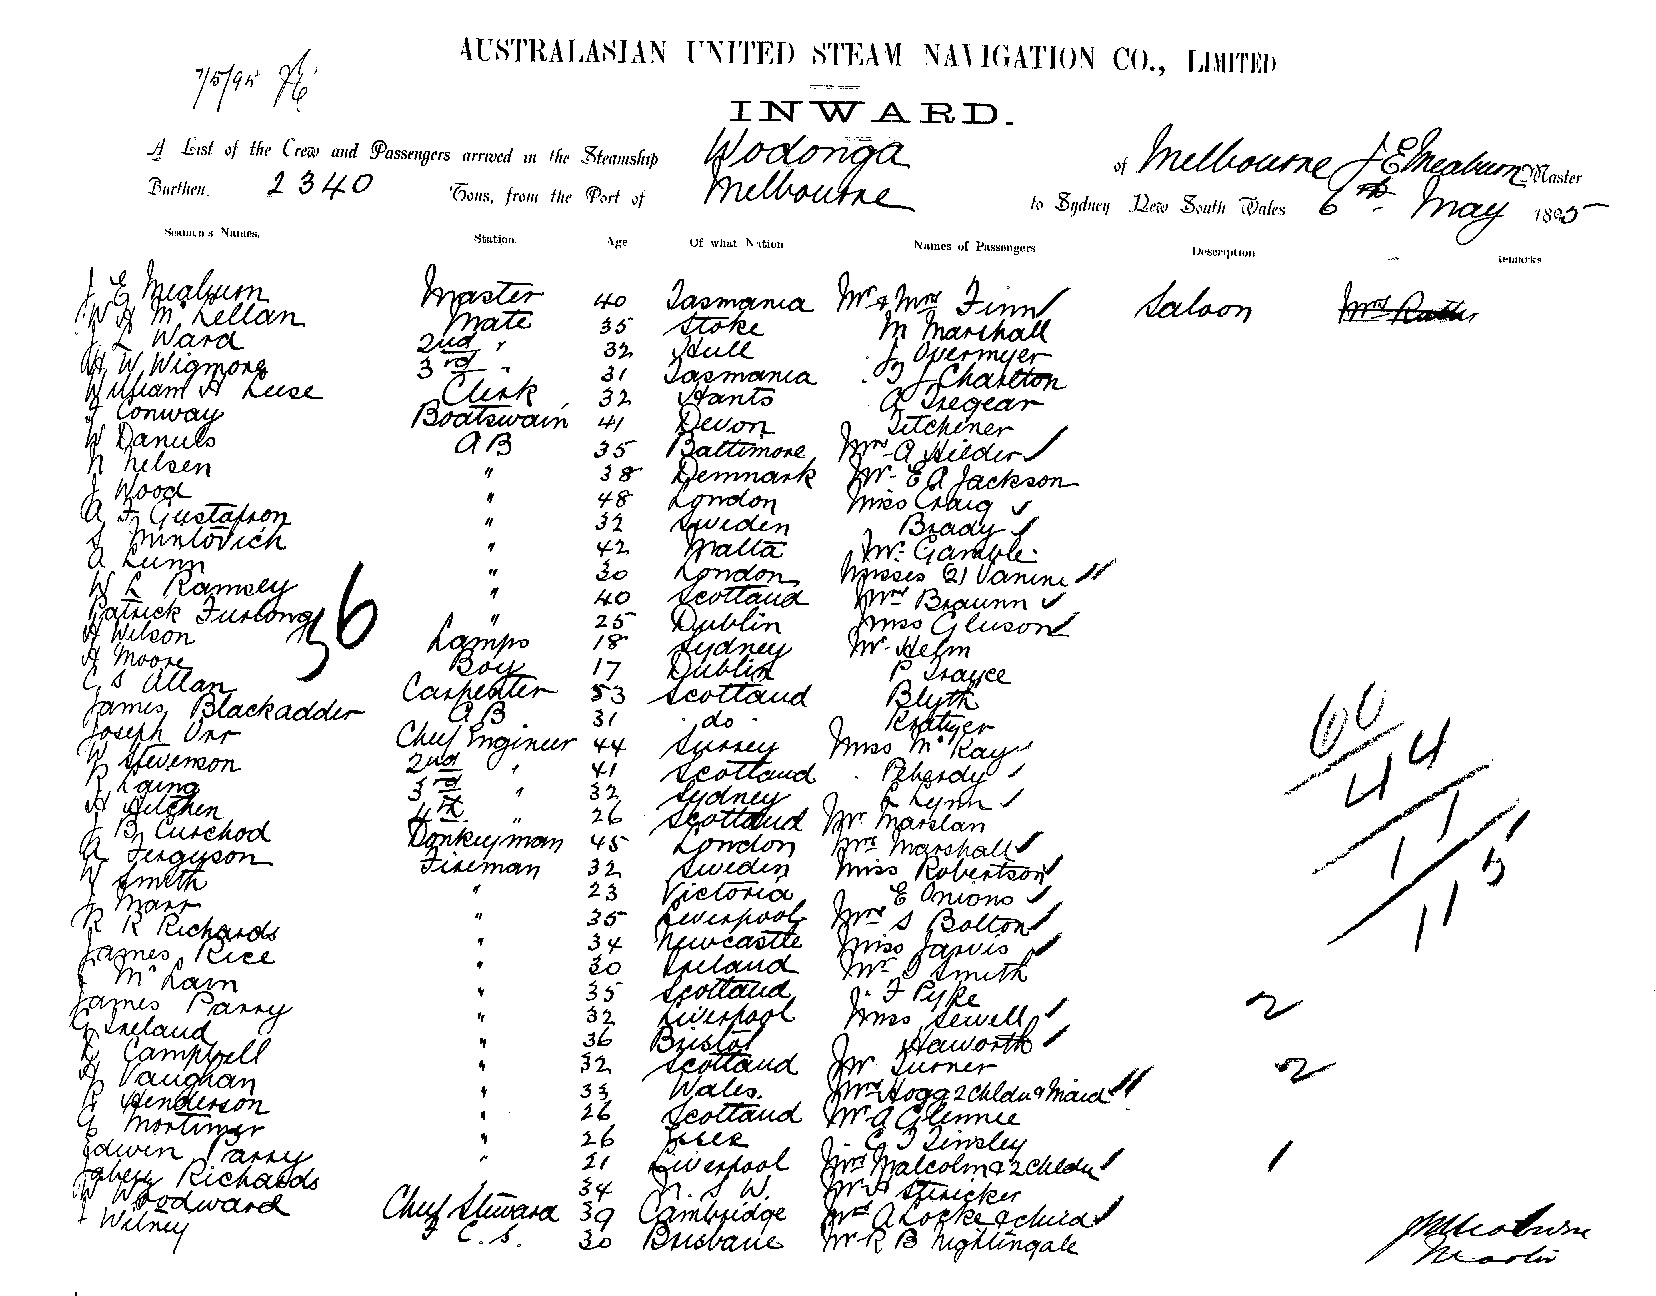 AUSTRALASIAN UNITED STEAM NAVIGATION CO., LIMITED
7/5/95
INWARD.
A List of the Crew and Passengers arrived in the Steamship Wodonga of Melbourne J E Meaburn Master
Burthen, 2340 Tons, from the Port of Melbourne to Sydney New South Wales 6th May 1895
Seamen's Names. Station. Age Of what Nation Names of Passengers Description Remarks
J E Meaburn Master 40 Tasmania Mr & Mrs Finn Saloon
W H McLellan Mate 35 Stoke M Marshall
J L Ward 2nd " 32 Hull J Overmyer
H W Wigmore 3rd " 31 Tasmania T J Charlton
William H Luise Clerk 32 Hants A Tregear
J Conway Boatswain 41 Devon Titchener
W Daniels A B 35 Baltimore Mrs A Hilder
N Nelsen " 38 Denmark Mr E A Jackson
J Wood " 48 London Miss Craig
A F Gustafson " 32 Sweden Brady
S Mintovich " 42 Malta Mr Gamble
A Lunn " 30 London Misses (2) Vanine
W L Ramsey " 40 Scotland Mrs Braunn
Patrick Furlong " 25 Dublin Miss Gluson
36
H Wilson Lamps 18 Sydney Mr Helm
H Moore Boy 17 Dublin P Trayce
C S Allan Carpenter 53 Scotland Blyth
James Blackadder A B 31 do Kratzer
Joseph Orr Chief Engineer 44 Surrey Miss McKay
W Stevenson 2nd " 41 Scotland Peberdy
R Laing 3rd " 32 Sydney Lynn
H Aitchen 4th " 26 Scotland Mr Marslan
J B Curchod Donkeyman 45 London Mrs Marshall
A Ferguson Fireman 32 Sweden Miss Robertson
W Smith " 23 Victoria E Onions
J Marr " 35 Liverpool Mrs S Bolton
R R Richards " 34 Newcastle Miss Jarvis
James Rice " 30 Ireland Mr Smith
J McLain " 35 Scotland F Pyke
James Parry " 32 Liverpool Miss Sewell 2
G Ireland " 36 Bristol Haworth
D Campbell " 32 Scotland Mr Turner 2
H Vaughan " 33 Wales. Mrs Hogg 2 Chldn & Maid
R Henderson " 26 Scotland Mr A Glennie
G Mortimer " 26 C T Tinsley
Edwin Parry " 21 Liverpool Mrs Malcolm & 2 Chldn 1
Richards 34 N. S. W. Mr A Stricker
J Woodward Chief Steward 39 Cambridge Mrs A Locke & child
J Wilney F. C. S. 30 Brisbane Mr R B Nightingale
66
44
1 1
11 5
J E Meaburn
Master